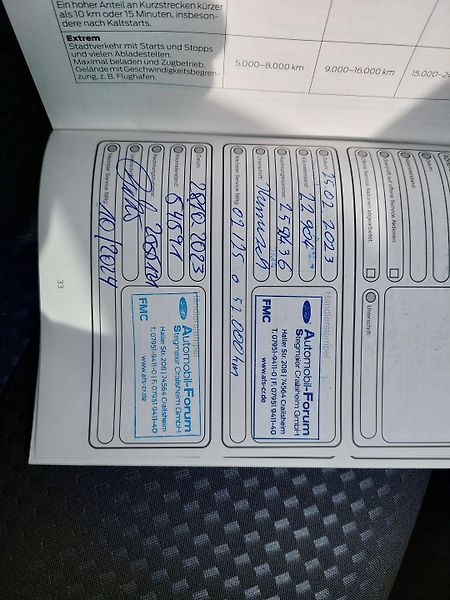 Ein hoher Anteil an Kurzstrecken kürzer
als 10 km oder 15 Minuten, insbeson-
dere nach Kaltstarts.
Extrem
Stadtverkehr mit Starts und Stopps
und vielen Abladestellen.
Maximal beladen und Zugbetrieb.
Gelände mit Geschwindigkeitsbegren-
zung, z. B. Flughafen.
5.000–8.000 km
9.000–16.000 km
Service Aktionen abgearbeitet:
offene Service Aktionen:
Unterschrift
Datum
25.01.2023
Kilometerstand
Rechnungsnummer
259436
Unterschrift
Nächster Service fällig:
Händlerstempel
Ford
Automobil-Forum
Stegmaier Crailsheim GmbH
Haller Str. 208 | 74564 Crailsheim
T. 07951-9411-0 | F. 07951 9411-40
www.afs-cr.de
FMC
Datum
28.10.2023
Kilometerstand
64591
Rechnungsnummer
Unterschrift
Nächster Service fällig:
10/2024
Händlerstempel
Ford
Automobil-Forum
Stegmaier Crailsheim GmbH
Haller Str. 208 | 74564 Crailsheim
T. 07951-9411-0 | F. 07951 9411-40
www.afs-cr.de
FMC
33